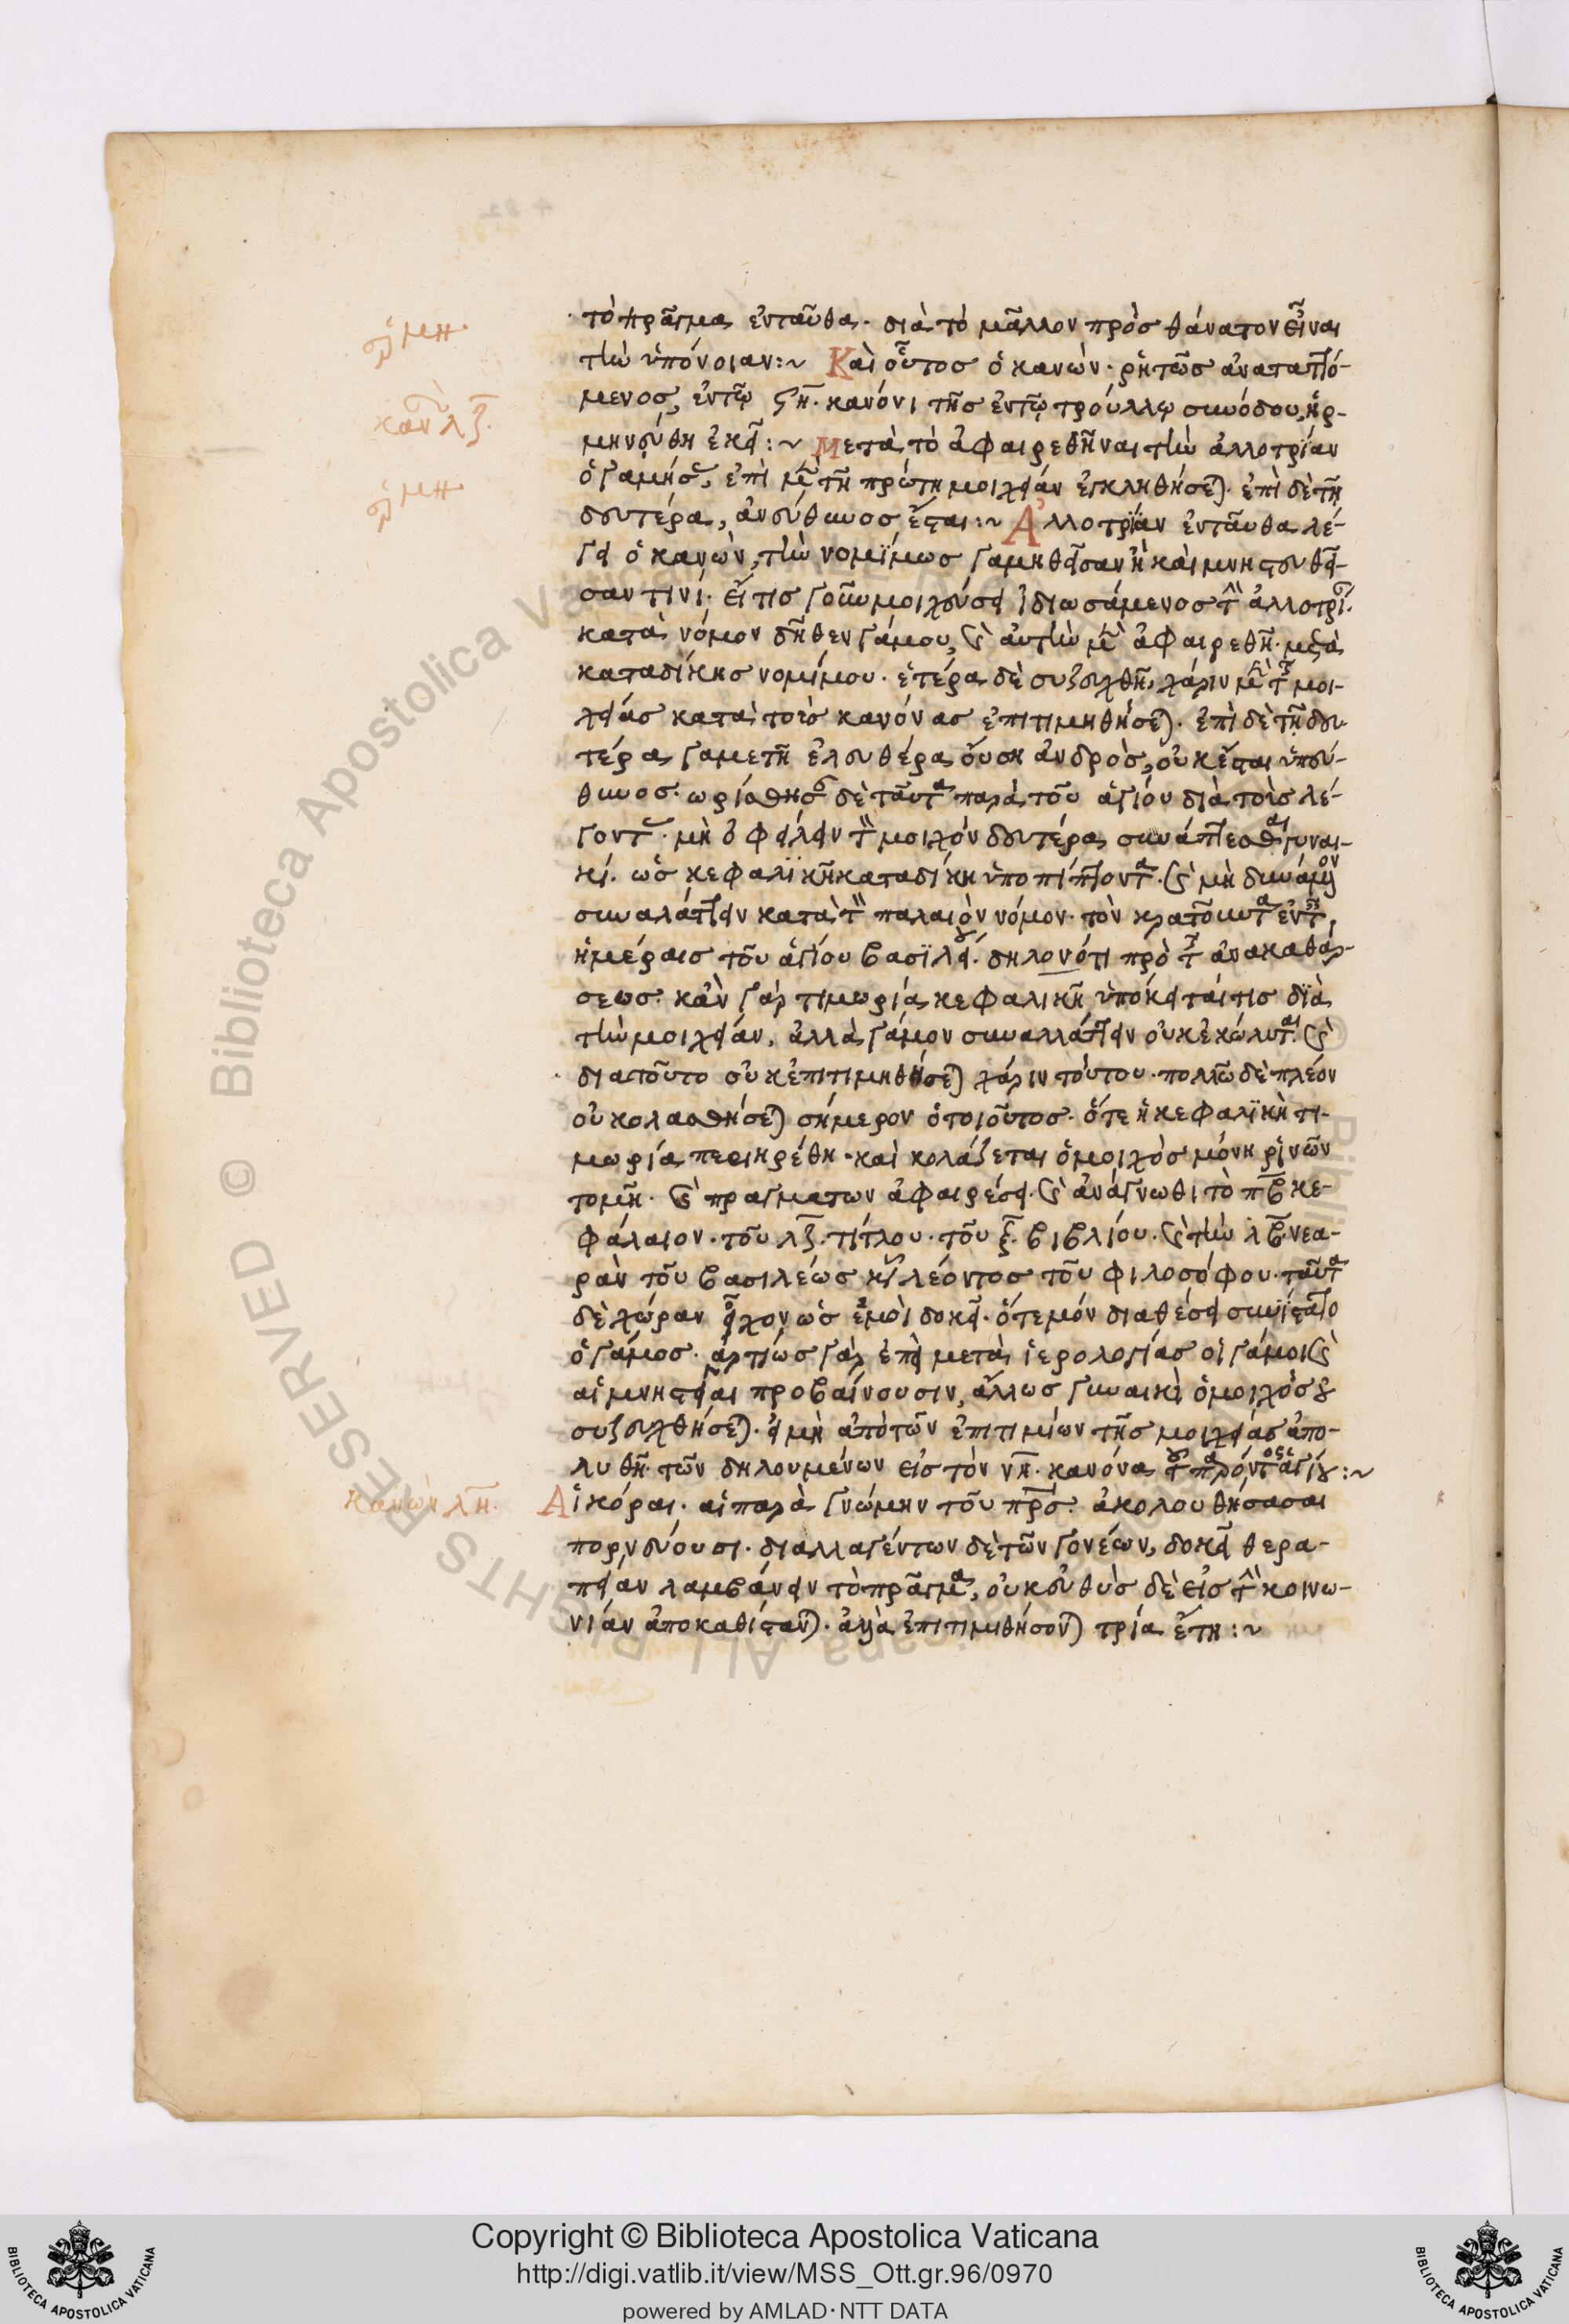 τὸ πρᾶγμα ἐνταῦθα· διὰ τὸ μᾶλλον πρὸς θάνατον εἶναι
ἑρμη
τὴν ὑπόνοιαν:~ Καὶ οὗτος ὁ κανὼν· ῥητῶς ἀναταττό-
μενος, ἐν τῷ ϟη̄· κανόνι τῆς ἐν τῷ τρούλλῳ συνόδου, ἡρ-
κανὼν λζ̄.
μηνεύθη ἐκεῖ:~ Μετὰ τὸ ἀφαιρεθῆναι τὴν ἀλλοτρίαν
ὁ γαμήσ, ἐπὶ μ τῇ πρώτῃ μοιχείαν ἐγκληθήσε· ἐπὶ δὲ τῇ
ἑρμη
δευτέρα, ἀνεύθυνος ἔσται:~ Ἀλλοτρίαν ἐνταῦθα λέ-
γει ὁ κανὼν, τὴν νομίμως γαμηθεῖσαν ἢ καὶ μνηστευθεῖ-
σαν τινί· εἴ τις γοῦν μοιχεύσει ἰδιωσάμενος τ ἀλλοτρί.
κατὰ νόμον δῆθεν γάμου, καὶ αὐτὴν μ ἀφαιρεθῇ· μετὰ
καταδίκης νομίμου· ἑτέρα δὲ συζευχθῇ, χάριν μ τ μοι-
χείας κατὰ τοὺς κανόνας ἐπιτιμηθήσε· ἐπὶ δὲ τῇ δευ-
τέρα γαμετῇ ἐλευθέρα οὔση ἀνδρὸς, οὐκ ἔσται ὑπεύ-
θυνος· ὡρίσθησ δὲ ταῦτα παρὰ τοῦ ἁγίου διὰ τοὺς λέ-
γοντ· μὴ ὀφείλειν τ μοιχὸν δευτέρα συνάπτεσθαι γυναι-
κί· ὡς κεφαλικῇ καταδίκῃ ὑποπίπτοντα· καὶ μὴ δυνάμενον
συναλάττειν κατὰ τ παλαιὸν νόμον· τὸν κρατοῦντα ἐν τ
ἡμέραις τοῦ ἁγίου βασιλεί· δηλονότι πρὸ τ ἀνακαθάρ-
σεως· κἂν γὰρ τιμωρία κεφαλικῇ ὑπόκειταί τις διὰ
τὴν μοιχείαν, ἀλλὰ γάμον συναλλάττειν οὐ κεκώλυται· καὶ
διατοῦτο οὐκ ἐπιτιμηθήσε χάριν τούτου· πολλῷ δὲ πλέον
οὐ κολασθήσε σήμερον ὁ τοιοῦτος· ὅτε ἡ κεφαλικὴ τι-
μωρία περιηρέθη· καὶ κολάζεται ὁ μοιχὸς μόνη ῥινῶν
τομῇ· καὶ πραγμάτων ἀφαιρέσει· καὶ ἀνάγνωθι τὸ πβ̄ κε-
φάλαιον· τοῦ λζ̄· τίτλου· τοῦ ξ̄· βιβλίου· καὶ τὴν λβ̄ νεα-
ρὰν τοῦ βασιλέως κυρ λέοντος τοῦ φιλοσόφου· ταῦτα
δὲ χώραν εἶχον ὡς ἐμοὶ δοκεῖ· ὅτε μόν διαθέσει συνίστατο
ὁ γάμος· ἀρτίως γὰρ ἐπεὶ μετὰ ἱερολογίας οἱ γάμοι καὶ
αἱ μνηστεῖαι προβαίνουσιν, ἄλλως γυναικὶ ὁ μοιχὸς οὐ
συζευχθήσε· εἰ μὴ ἀπὸ τῶν ἐπιτιμίων τῆς μοιχείας ἀπο-
λυθῇ· τῶν δηλουμένων εἰς τὸν νη̄· κανόνα τοῦ παρόντος ἁγίου:~
κανὼν λη̄.
Αἱ κόραι· αἱ παρὰ γνώμην τοῦ πρ̄ς· ἀκολουθήσασαι
πορνεύουσι· διαλλαγέντων δὲ τῶν γονέων, δοκεῖ θερα-
πείαν λαμβάνειν τὸ πρᾶγμα, οὐκ εὐθὺς δὲ εἰς τ κοινω-
νίαν ἀποκαθίσταν· ἀλλὰ ἐπιτιμιθήσον τρία ἔτη:~
© Biblioteca Apostolica Vaticana ALL RIGHTS RESERVED
Copyright © Biblioteca Apostolica Vaticana
http://digi.vatlib.it/view/MSS_Ott.gr.96/0970
powered by AMLAD·NTT DATA
BIBLIOTECA APOSTOLICA VATICANA
BIBLIOTECA APOSTOLICA VATICANA